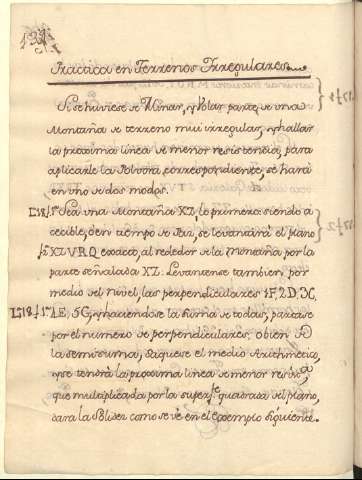 Practica en Terrenos Irregulares
Si se huviese de Minar, y Volar parte, de una
Montaña de terreno mui irregular, y hallar
la proxima linea de menor resistencia, para
aplicarle la Polvora, correspondiente, se hará
en uno de dos modos.
1º Sea una Montaña XZ, lo primero: siendo a
cecible, en tiempo de Paz, se levantará el plano
XZVRQ exacto, al rededor de la Montaña por la
parte señalada XZ: Levantense tambien, por
medio del Nivel, las perpendiculares 1F, 2D, 3C,
4E, 5G, y haciendose la suma de todas, partase
por el numero de perpendiculares, o bien
la semisuma, saquese el medio Arithmetico,
y se tendrá la proxima linea de menor resisᵃ
que multiplicada por la superfᵉ quadrada del plano,
dara la Solidez como se vé en el exemplo siguiente.